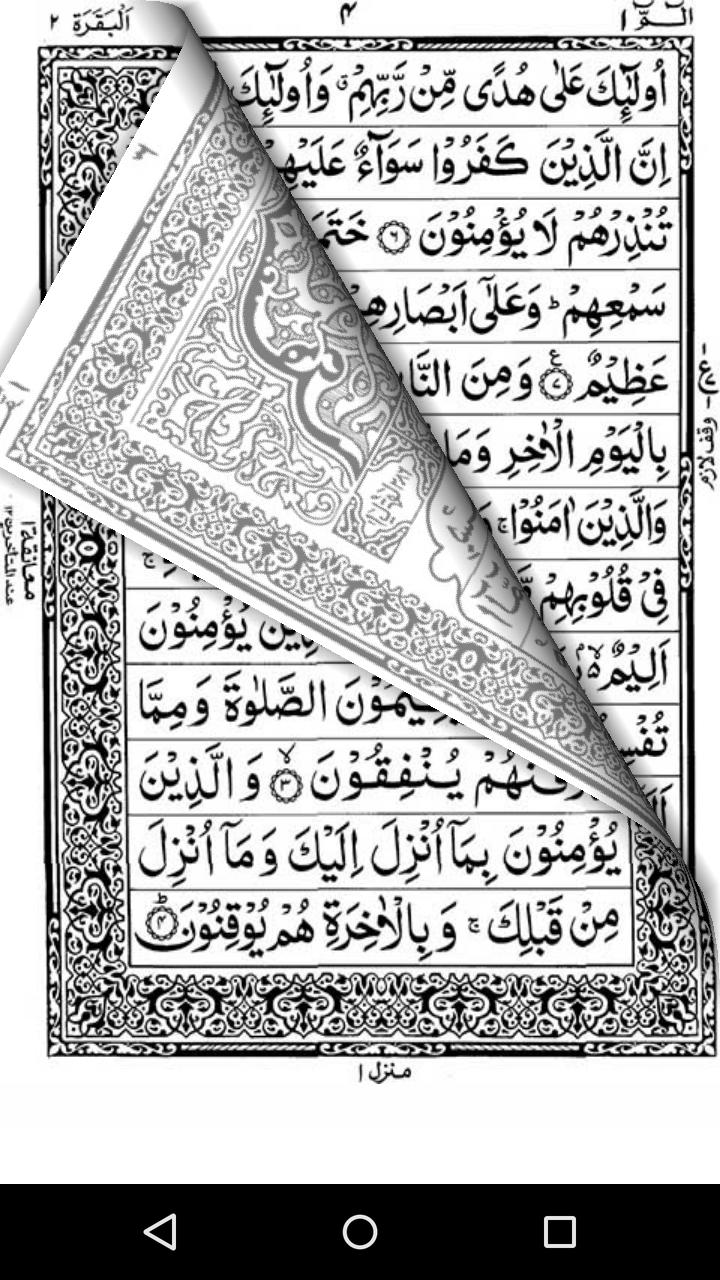 الٓمّٓ ١
۴
اَلْبَقَرَة ٢
اُولٰٓئِكَ عَلٰی هُدًی مِّنْ رَّبِّهِمْ ۗ وَاُولٰٓئِكَ
اِنَّ الَّذِیْنَ كَفَرُوْا سَوَآءٌ عَلَیْهِمْ
تُنْذِرْهُمْ لَا یُؤْمِنُوْنَ ۝۶ خَتَمَ
سَمْعِهِمْ ؕ وَعَلٰۤی اَبْصَارِهِ
عَظِیْمٌ ۝۷ۧ وَمِنَ النَّا
بِالْیَوْمِ الْاٰخِرِ وَمَا
وَالَّذِیْنَ اٰمَنُوْا ۚ
فِیْ قُلُوْبِهِمْ
اَلِیْمٌ ۙ۬
تُفْسِ
یُؤْمِنُوْنَ
الصَّلٰوةَ وَمِمَّا
یُنْفِقُوْنَ ۝۳ۙ وَالَّذِیْنَ
یُؤْمِنُوْنَ بِمَاۤ اُنْزِلَ اِلَیْكَ وَمَاۤ اُنْزِلَ
مِنْ قَبْلِكَ ۚ وَبِالْاٰخِرَةِ هُمْ یُوْقِنُوْنَ ۝۴ؕ
منزل ١
ع
وقف لازم
معانقة ١
عند المتأخرين ١٢
٣